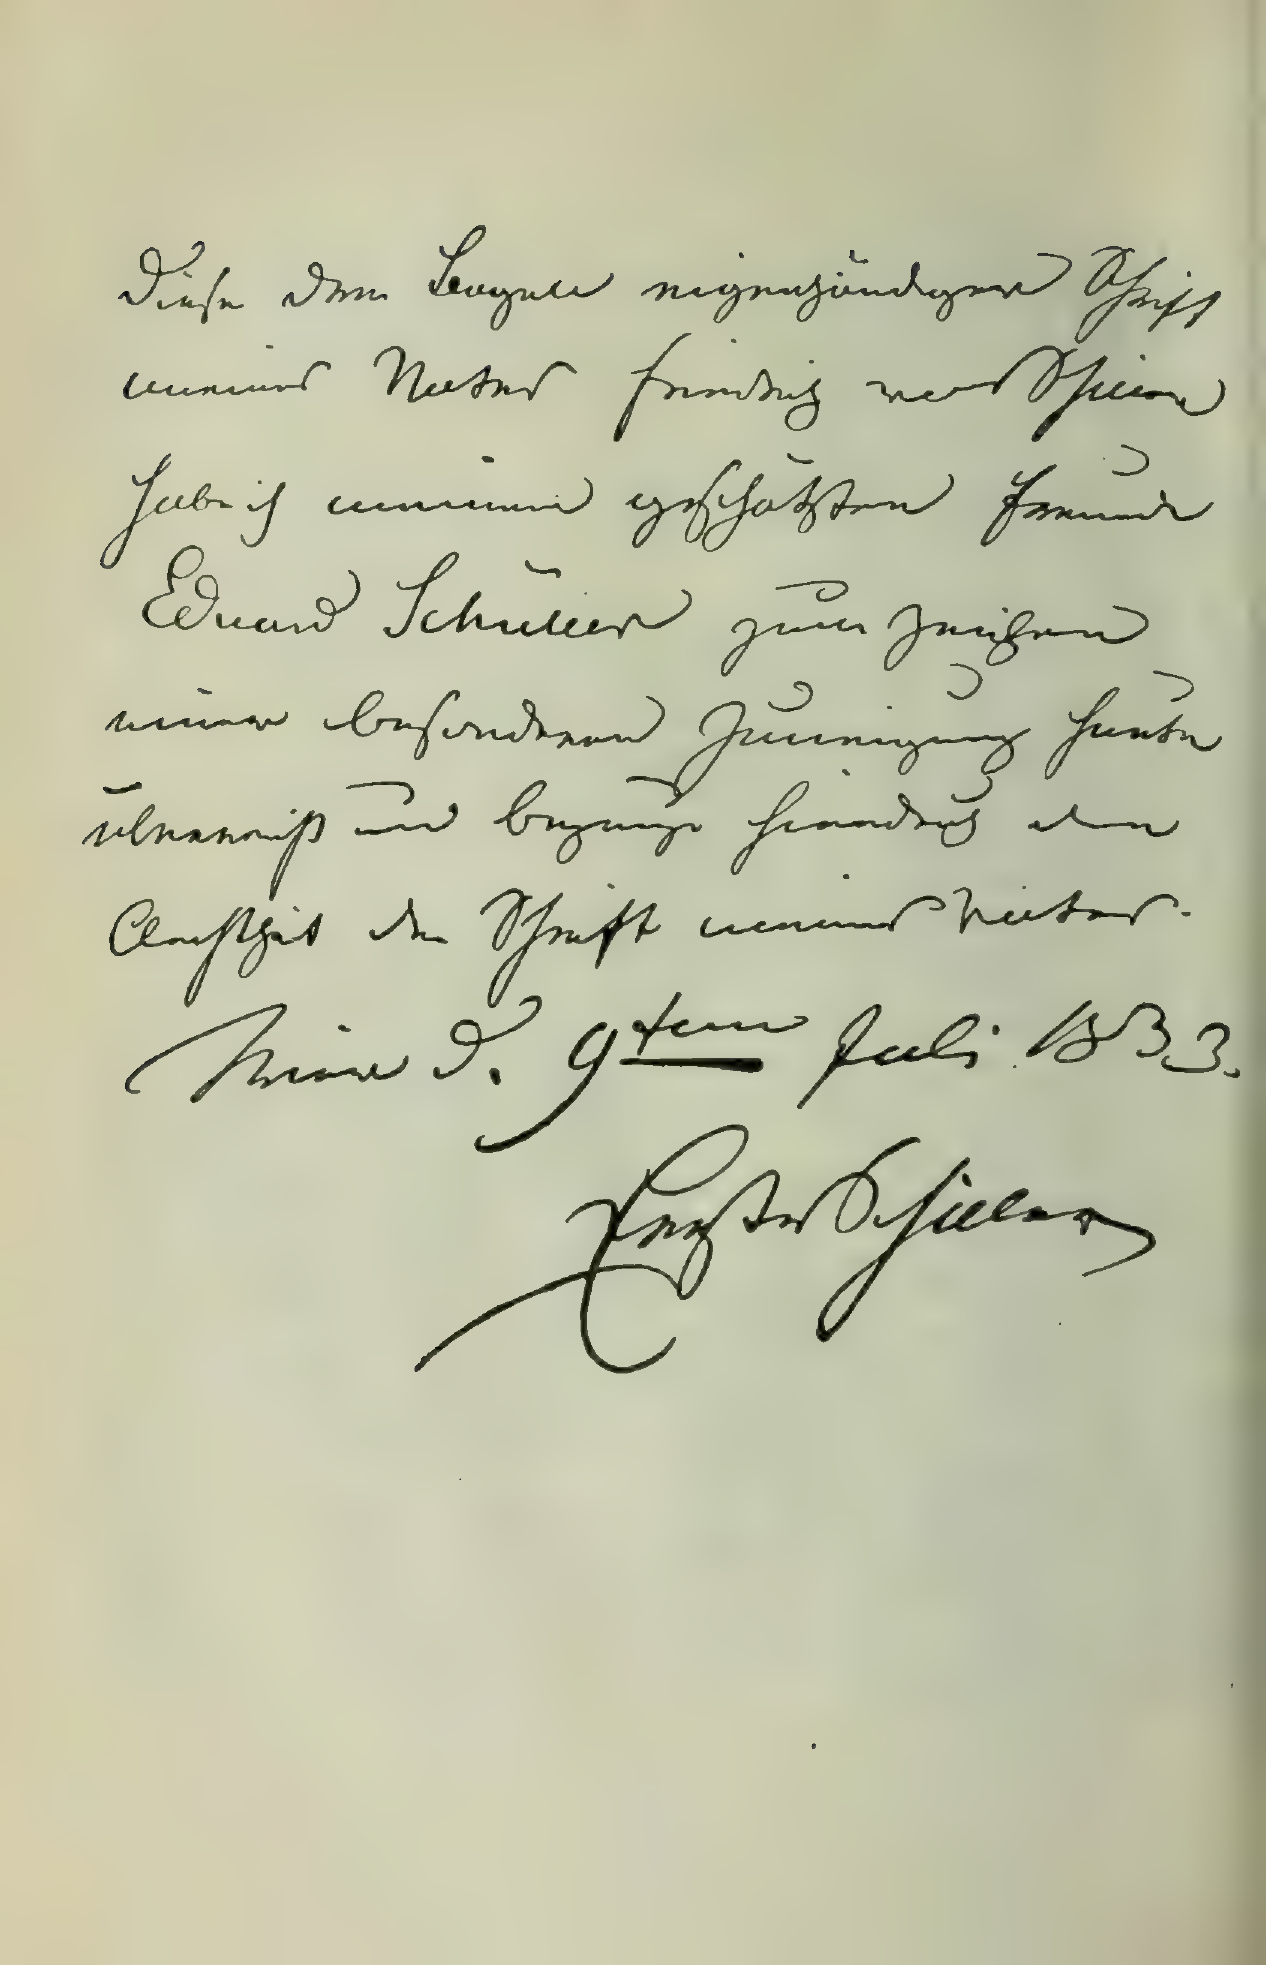 Diese eigenhändiger Schrift
meines Vaters Friedrich von Schiller
habe ich meinem geschätzten Freunde
Eduard Schüller zum Zeichen
meiner besonderen Zuneigung heute
und bezeuge hierdurch die
Aechtheit der Schrift meines Vaters.
d. 9ten Juli 1833.
Schiller